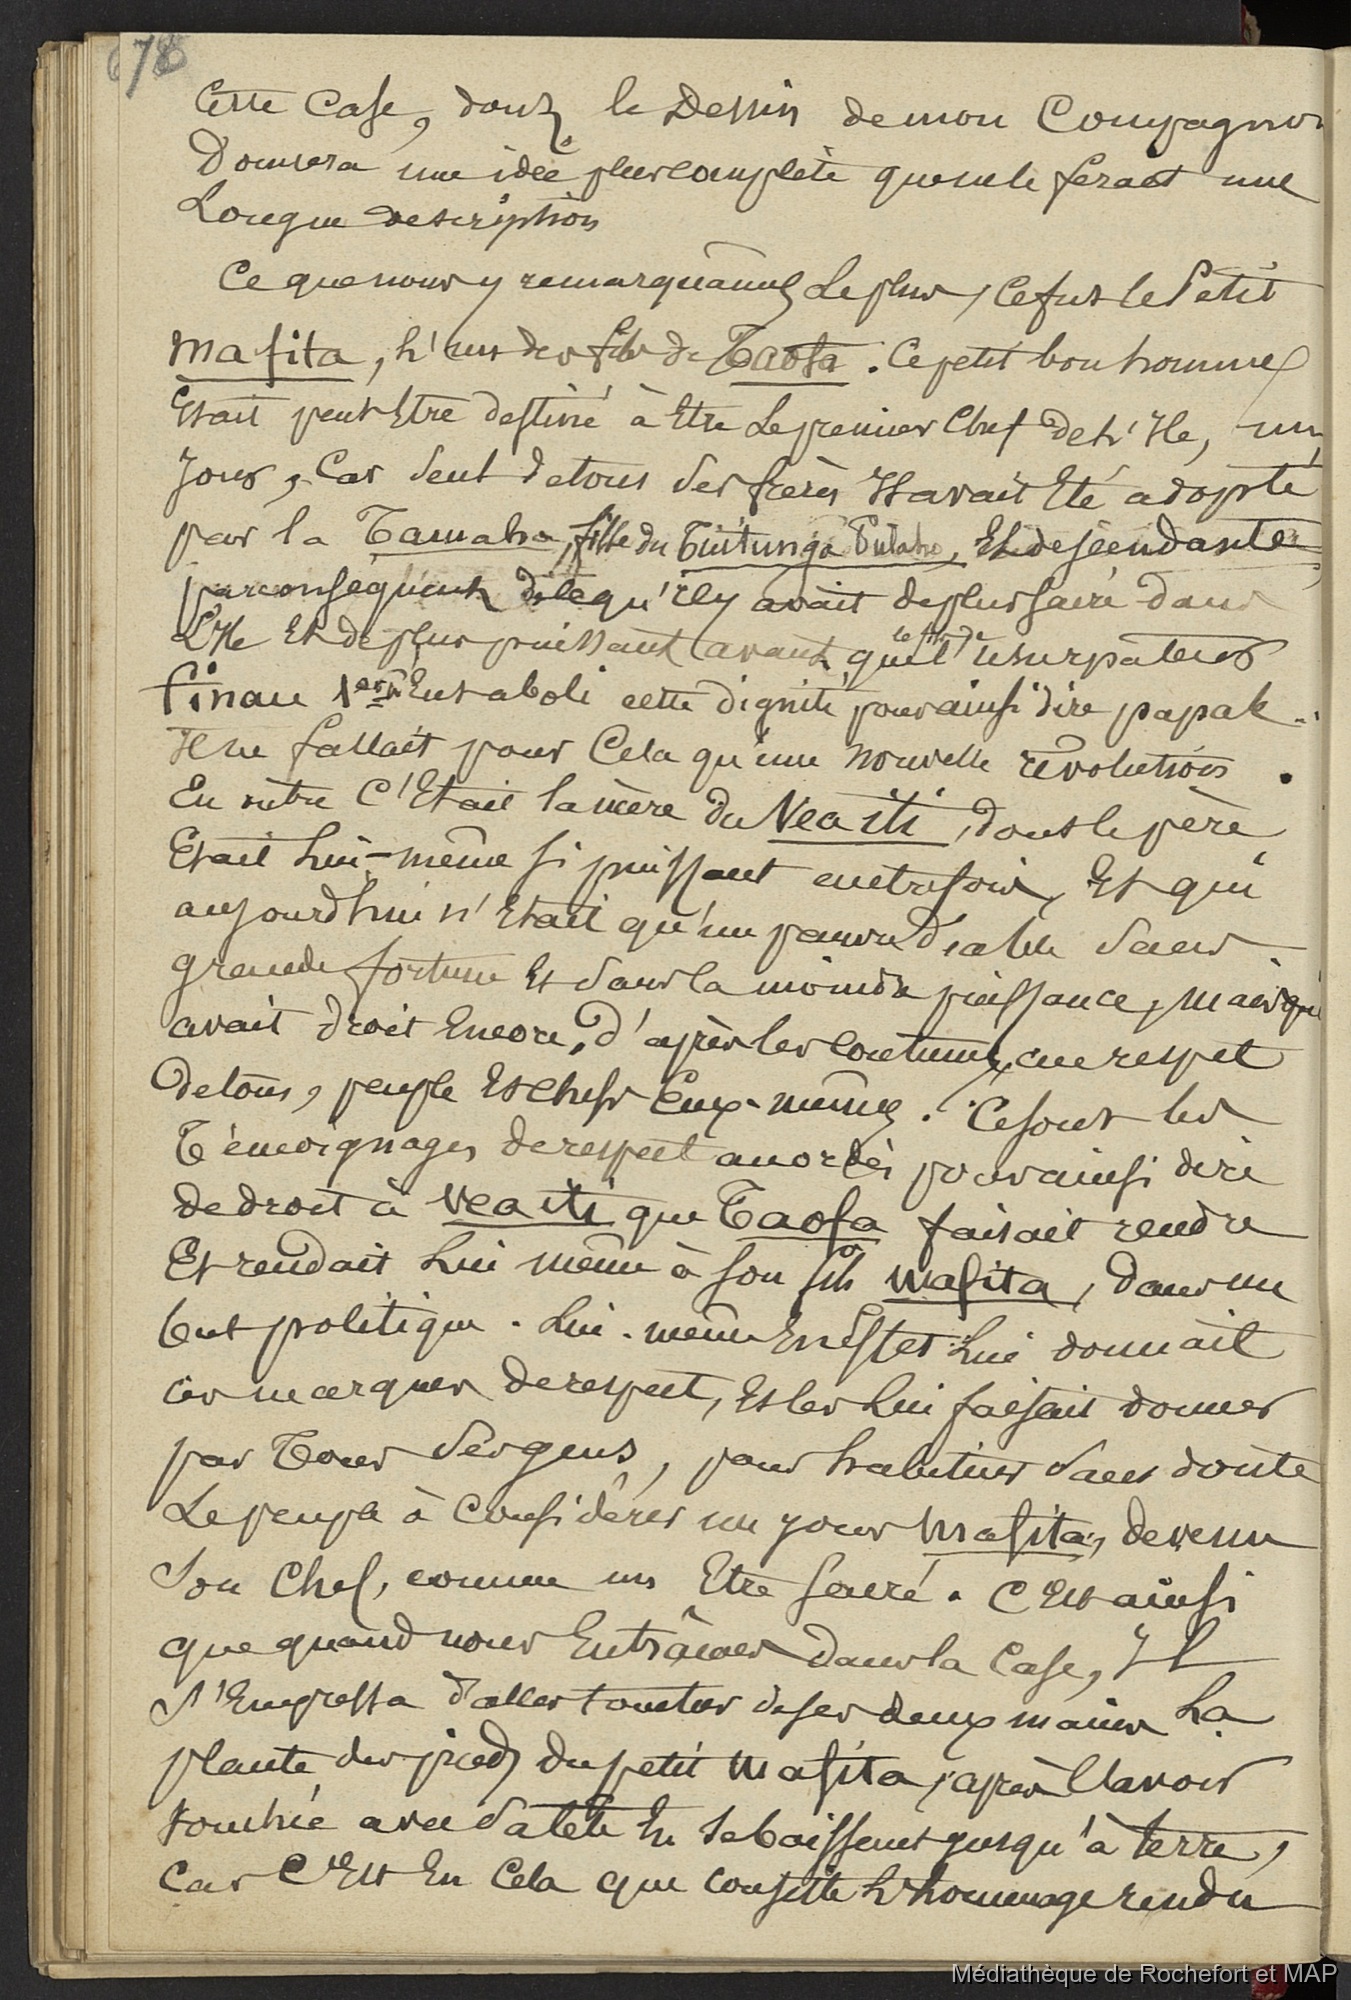 78
Cette Case, dont le Dessin de mon Compagnon
Donnera une idée plus complète que ne le ferait une
Longue description
Ce que nous y remarquâmes le plus, ce fut le Petit
Mafita, l'un des fils de Taofa. Ce petit bonhomme
Etait peut Etre destiné à Etre le premier Chef de l'Ile, un
jour, Car Seul de tous ses frères Il avait Eté adopté
par la Tamaha, fille du Tuitunga Pulaho, Et descendante
par conséquent de ce qu'il y avait de plus sacré dans
L'Ile Et de plus puissant avant que l'usurpateur
Finau 1er Eut aboli cette dignité, pour ainsi dire papale.
Il ne fallait pour Cela qu'une nouvelle révolution.
En outre C'Etait la mère du Veasiti, dont le père
Etait Lui-même si puissant autrefois, Et qui
aujourd'hui n'Etait qu'un pauvre diable sans
grande fortune Et sans la moindre puissance, mais qui
avait droit Encore, d'après les coutumes, au respect
de tous, peuple Et chefs Eux-mêmes. Ce sont les
Témoignages de respect accordés pour ainsi dire
de droit à Veasiti que Taofa faisait rendre
Et rendait Lui même à son fils Mafita, dans un
but politique. Lui-même En Effet Lui donnait
ces marques de respect, Et les Lui faisait donner
par Tous ses gens, pour habituer sans doute
Le peuple à Considérer un jour Mafita, devenu
Son Chef, comme un Etre sacré. C'Est ainsi
que quand nous Entrâmes dans la Case, Il
S'Empressa d'aller toucher de ses deux mains La
plante des pieds du petit Mafita, après l'avoir
touchée avec sa tête En se baissant jusqu'à terre,
Car C'Est En Cela que consiste L'hommage rendu
Médiathèque de Rochefort et MAP